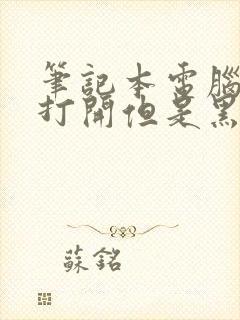 筆記本電腦
打開但是黑
蘇銘